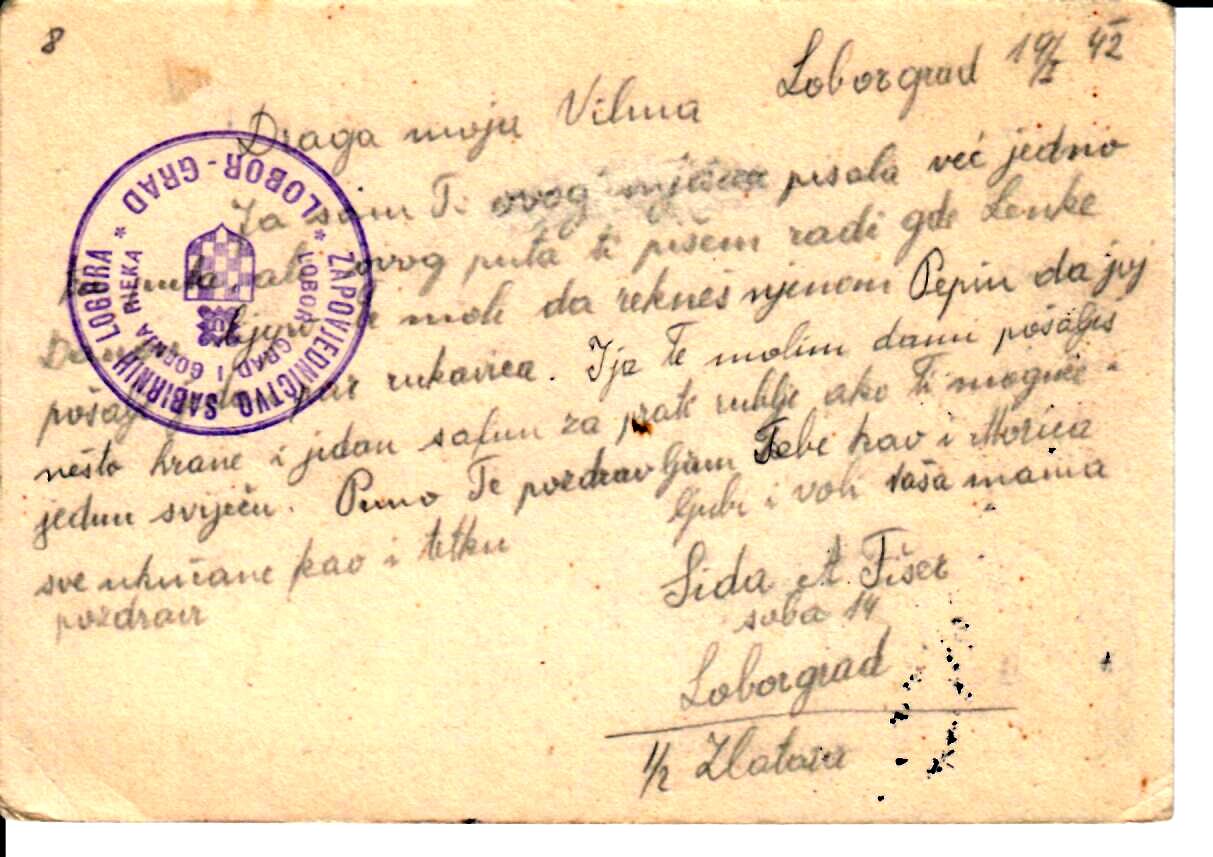 8
Loborgrad 19/I 42
Draga moja Vilma
Ja sam Ti ovog mjeseca pisala već jedno
ovog puta ti pisem radi gđe Lenke
moli da rekneš njenom Pepiu da joj
pošalje par rukavica. I ja Te molim dami pošalješ
nešto hrane i jedan safun za prati rublje ako Ti moguće i
jednu sviječu. Puno Te pozdravljam Tebe kao i Morica
ljubi i voli vaša mama
sve ukučane kao i tetku
pozdrav
Sida A. Fišer
soba 14
Loborgrad
Zlatara
ZAPOVJEDNIČTVO SABIRNIH LOGORA
* LOBOR-GRAD *
LOBOR GRAD I GORNJA RIEKA